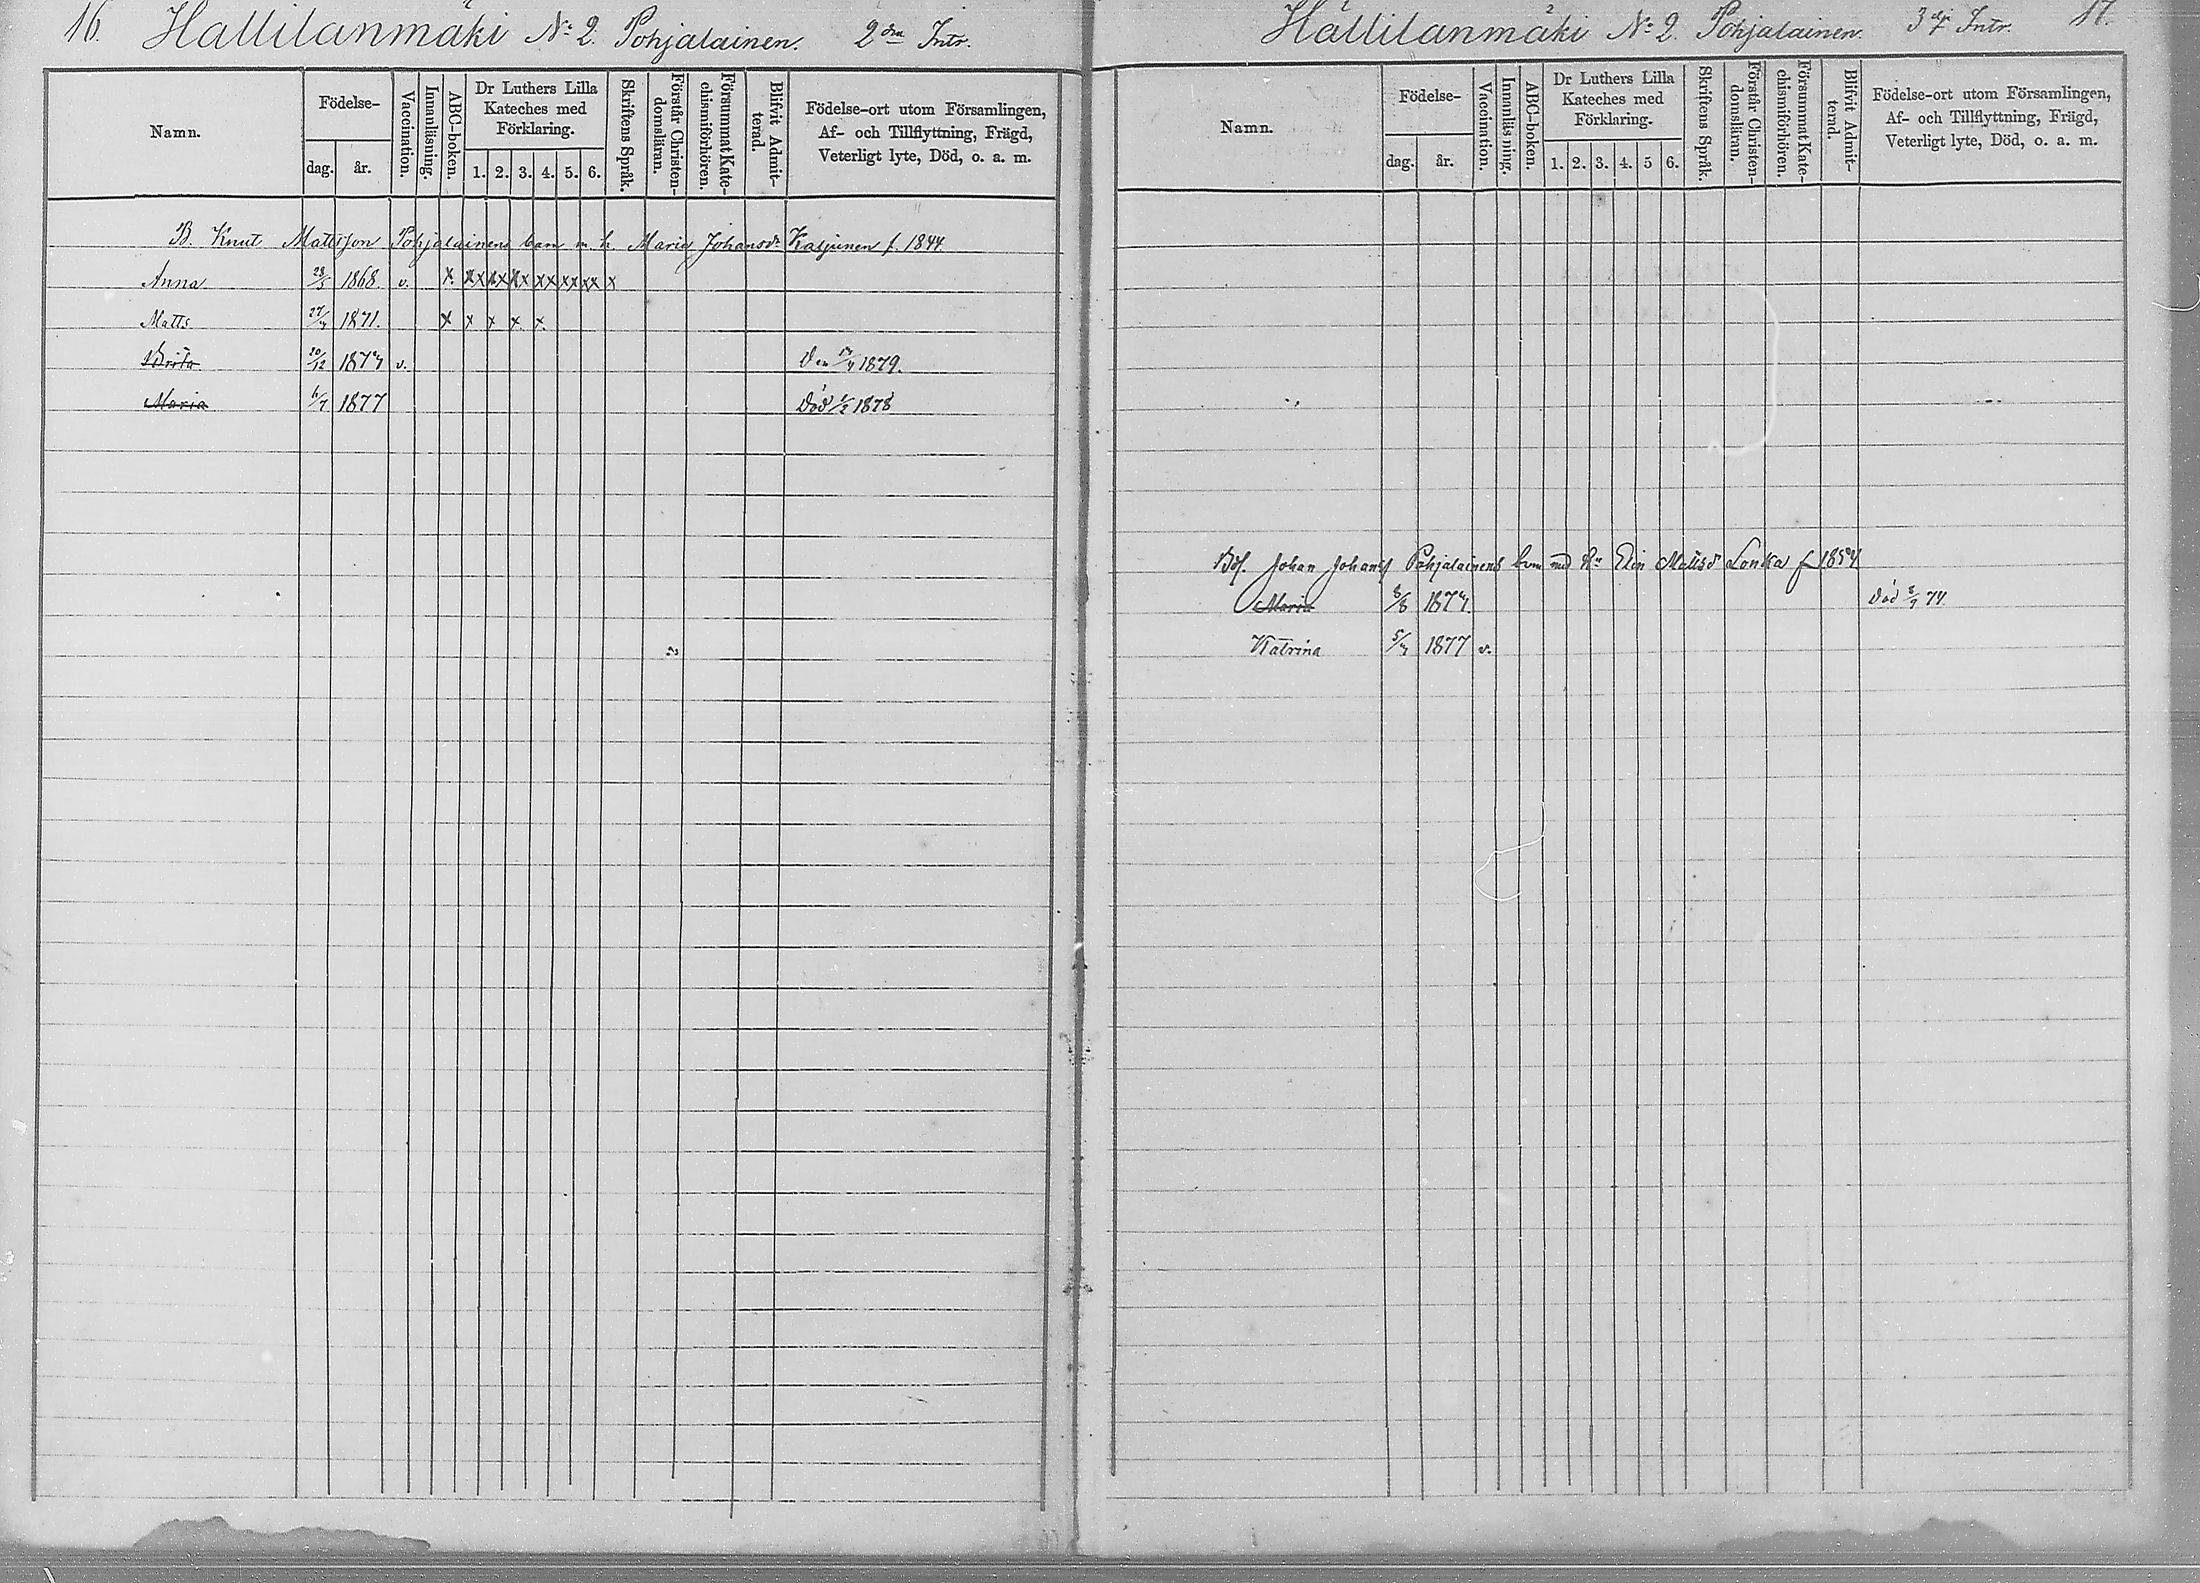 16. Hällilänmäki No 2. Pohjalainen. 2dra Intr.
Namn.
Födelse-
dag.
år.
Vaccination.
Innanläsning.
ABC-boken.
Dr Luthers Lilla
Kateches med
Förklaring.
1. 2. 3. 4. 5. 6.
Skriftens Språk.
Förstår Christen-
domsläran.
Försummat Kate-
chismiförhören.
Blifvit Admit-
terad.
Födelse-ort utom Församlingen,
Af- och Tillflyttning, Frägd,
Veterligt lyte, Död, o. a. m.
B. Knut Mattsson Pohjalainens barn m. h. Maria Johansdr Kasjunen f. 1844.
Anna 28/5 1868. v. x xx xx xx xx xx xx x
Matts 27/4 1871. x x x x x
Brita 20/12 1874 v. 1879.
Maria 6/7 1877 Död 1878
Hällilänmäki No 2. Pohjalainen. 3dj Intr. 17.
Namn.
Födelse-
dag.
år.
Vaccination.
Innanläsning.
ABC-boken.
Dr Luthers Lilla
Kateches med
Förklaring.
1. 2. 3. 4. 5 6.
Skriftens Språk.
Förstår Christen-
domsläran.
Försummat Kate-
chismiförhören.
Blifvit Admit-
terad.
Födelse-ort utom Församlingen,
Af- och Tillflyttning, Frägd,
Veterligt lyte, Död, o. a. m.
Johan Johans Pohjalainens barn med Elin Mattsd Lonka f 1854
Maria 8/8 1874. Död 8/9 74
Katrina 5/4 1877 v.